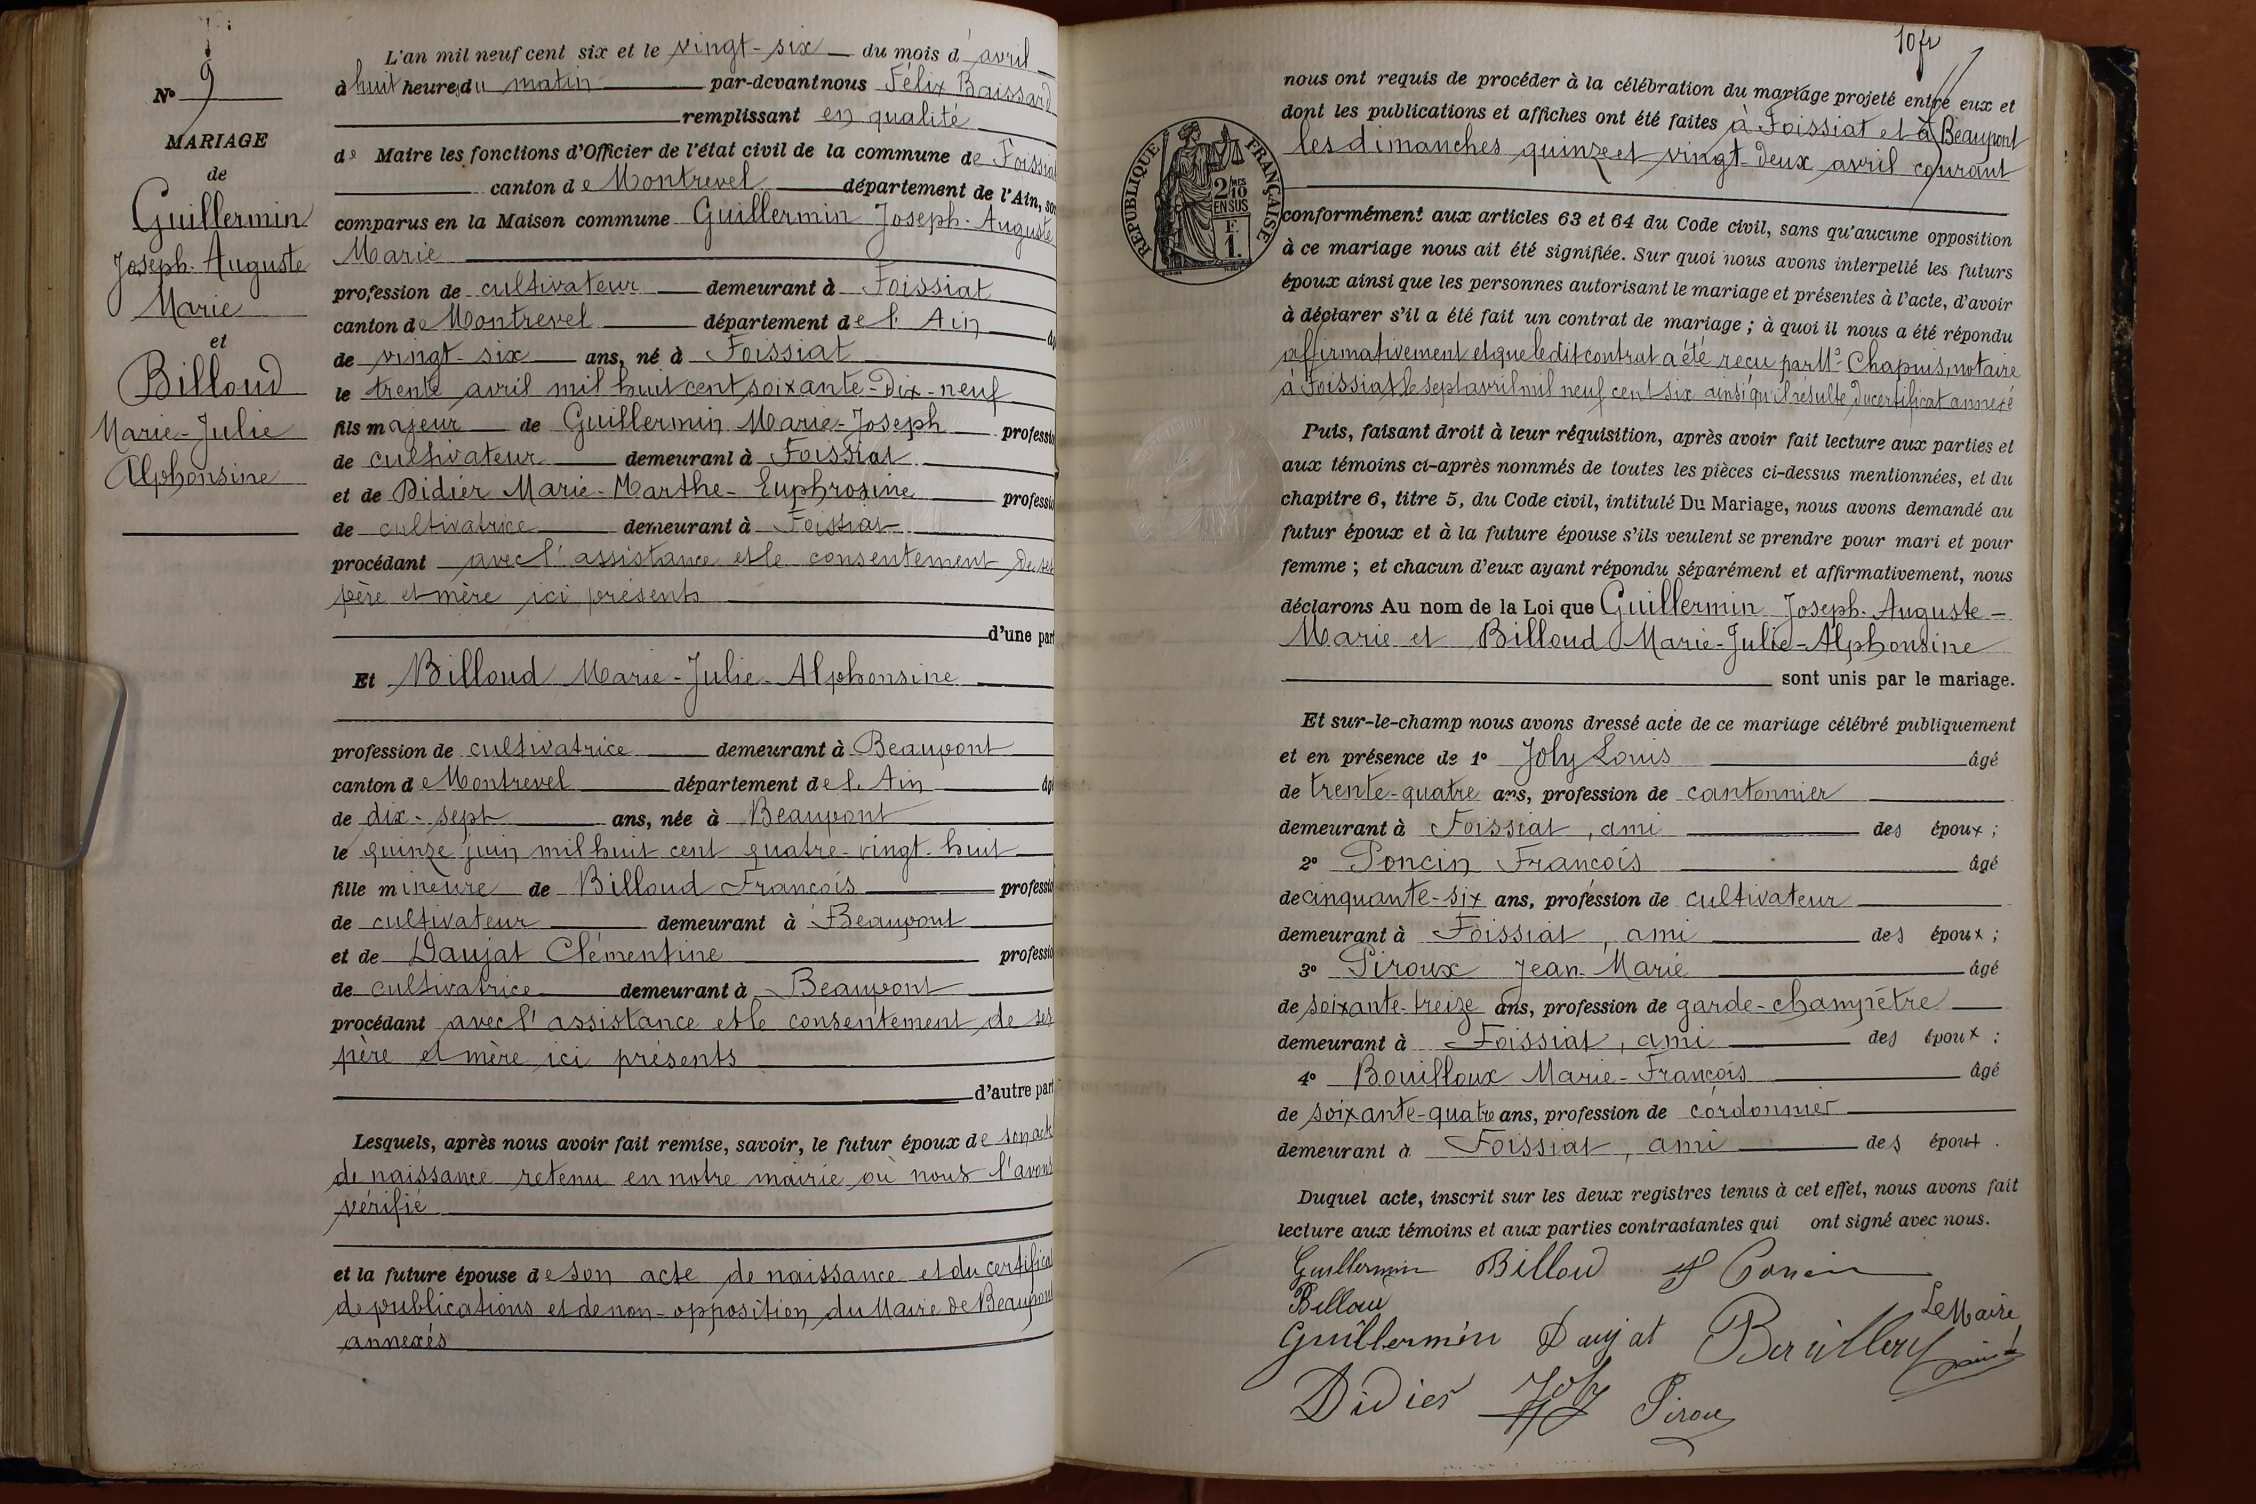 N° 9
MARIAGE
de
Guillermin
Joseph-Auguste
Marie
et
Billoud
Marie-Julie
Alphonsine
L'an mil neuf cent six et le vingt-six du mois d'avril
à huit heures du matin par-devant nous Félix Baissard
remplissant en qualité
de Maire les fonctions d'Officier de l'état civil de la commune de Foissiat
canton de Montrevel département de l'Ain, son
comparus en la Maison commune Guillermin Joseph-Auguste
Marie
profession de cultivateur demeurant à Foissiat
canton de Montrevel département de l'Ain âg
de vingt-six ans, né à Foissiat
le trente avril mil huit cent soixante-dix-neuf
fils majeur de Guillermin Marie-Joseph professio
de cultivateur demeurant à Foissiat
et de Didier Marie-Marthe-Euphrosine professio
de cultivatrice demeurant à Foissiat
procédant avec l'assistance et le consentement de ses
père et mère ici présents
d'une part
Et Billoud Marie-Julie-Alphonsine
profession de cultivatrice demeurant à Beaupont
canton de Montrevel département de l'Ain âgé
de dix-sept ans, née à Beaupont
le quinze juin mil huit cent quatre-vingt-huit
fille mineure de Billoud François professio
de cultivateur demeurant à Beaupont
et de Daujat Clémentine professio
de cultivatrice demeurant à Beaupont
procédant avec l'assistance et le consentement de ses
père et mère ici présents
d'autre part
Lesquels, après nous avoir fait remise, savoir, le futur époux de son acte
de naissance retenu en notre mairie où nous l'avons
vérifié
et la future épouse de son acte de naissance et du certificat
de publications et de non-opposition du Maire de Beaupont
annexés
10 fr
RÉPUBLIQUE FRANÇAISE
2/10
EN SUS
F.
1.
nous ont requis de procéder à la célébration du mariage projeté entre eux et
dont les publications et affiches ont été faites à Foissiat et à Beaupont
les dimanches quinze et vingt-deux avril courant
conformément aux articles 63 et 64 du Code civil, sans qu'aucune opposition
à ce mariage nous ait été signifiée. Sur quoi nous avons interpellé les futurs
époux ainsi que les personnes autorisant le mariage et présentes à l'acte, d'avoir
à déclarer s'il a été fait un contrat de mariage ; à quoi il nous a été répondu
affirmativement et que ledit contrat a été reçu par Me Chapuis, notaire
à Foissiat le sept avril mil neuf cent six ainsi qu'il résulte du certificat annexé
Puis, faisant droit à leur réquisition, après avoir fait lecture aux parties et
aux témoins ci-après nommés de toutes les pièces ci-dessus mentionnées, et du
chapitre 6, titre 5, du Code civil, intitulé Du Mariage, nous avons demandé au
futur époux et à la future épouse s'ils veulent se prendre pour mari et pour
femme ; et chacun d'eux ayant répondu séparément et affirmativement, nous
déclarons Au nom de la Loi que Guillermin Joseph-Auguste-
Marie et Billoud Marie-Julie-Alphonsine
sont unis par le mariage.
Et sur-le-champ nous avons dressé acte de ce mariage célébré publiquement
et en présence de 1° Joly Louis âgé
de trente-quatre ans, profession de cantonnier
demeurant à Foissiat, ami des époux ;
2° Poncin François âgé
de cinquante-six ans, profession de cultivateur
demeurant à Foissiat, ami des époux ;
3° Piroux Jean-Marie âgé
de soixante-treize ans, profession de garde-champêtre
demeurant à Foissiat, ami des époux ;
4° Bouilloux Marie-François âgé
de soixante-quatre ans, profession de cordonnier
demeurant à Foissiat, ami des époux.
Duquel acte, inscrit sur les deux registres tenus à cet effet, nous avons fait
lecture aux témoins et aux parties contractantes qui ont signé avec nous.
Guillermin Billou
Billoud Le Maire
Guillermin Daujat
Didier Joly Piroux